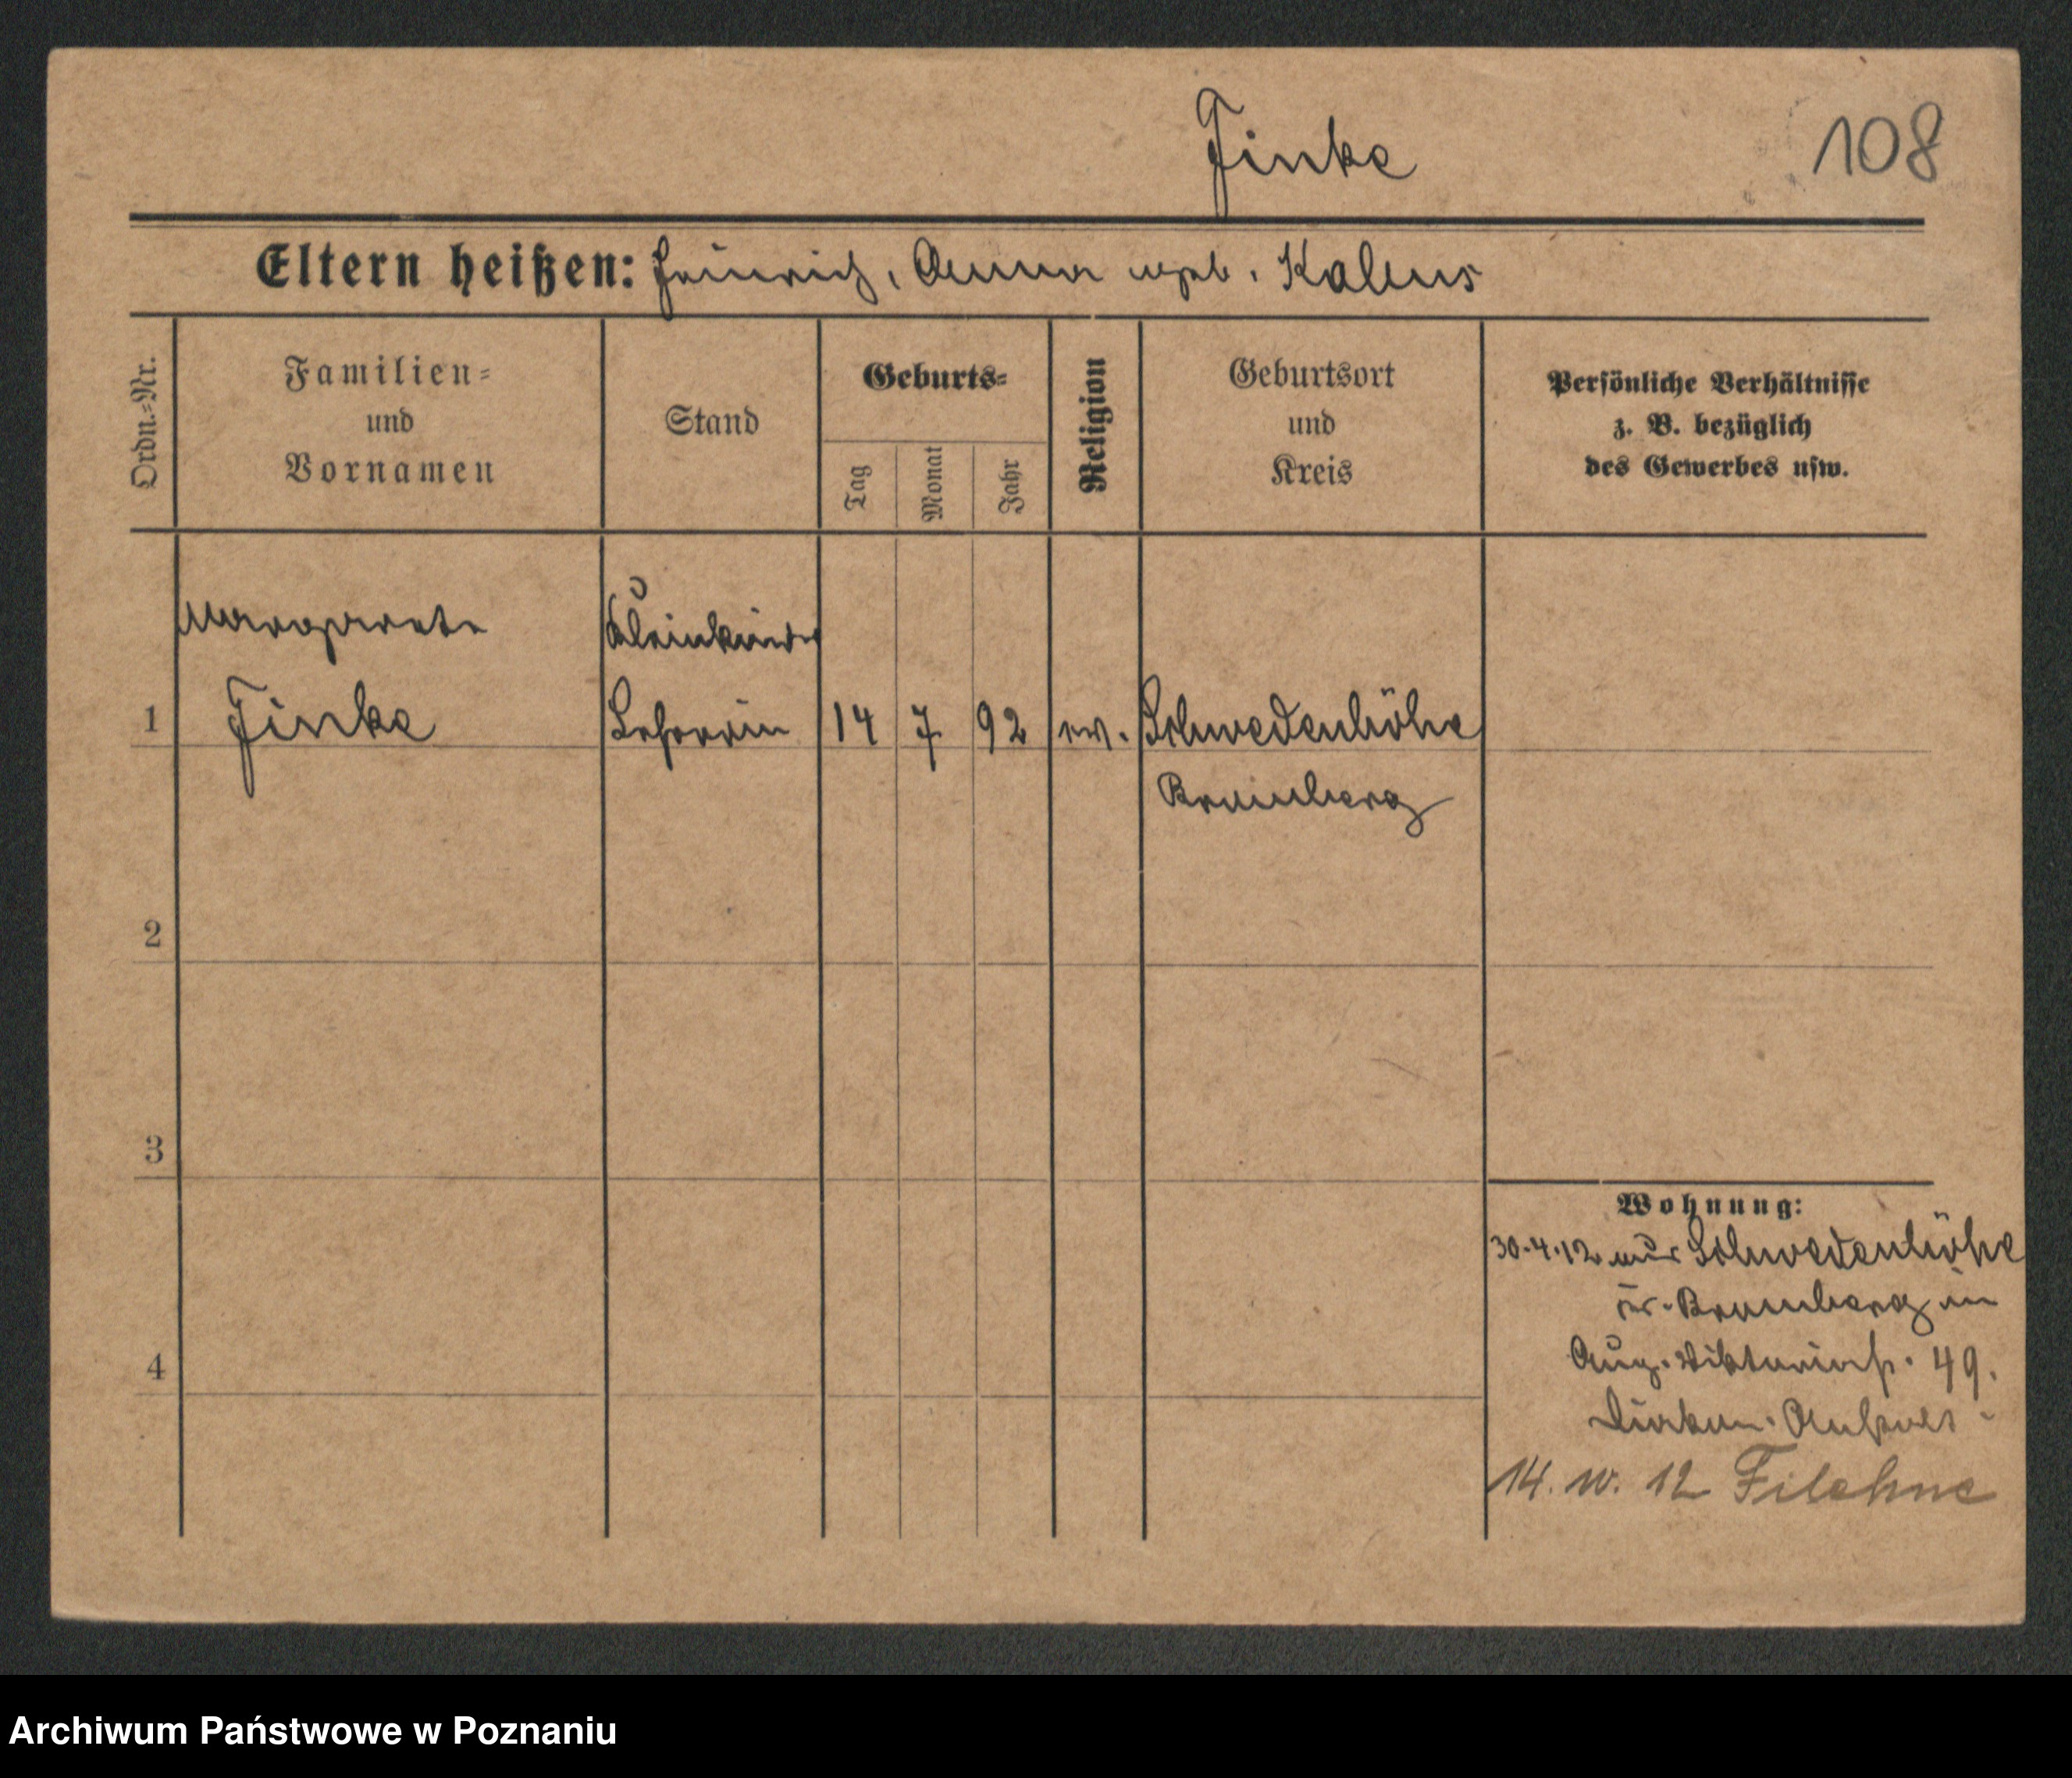 Finke
108
Eltern heißen: Heinrich, Anna geb. Kalus
Ordn.-Nr.
Familien-
und
Vornamen
Stand
Geburts-
Tag
Monat
Jahr
Religion
Geburtsort
und
Kreis
Persönliche Verhältnisse
z. B. bezüglich
des Gewerbes usw.
Margarete
Kleinkinder
1
Finke
Lehrerin
14
7
92
ev.
Schwedenhöhe
Bromberg
2
3
4
Wohnung:
30.4.12 aus Schwedenhöhe
Kr. Bromberg in
Aug. Viktoriastr. 49.
14. 10. 12 Filehne
Archiwum Państwowe w Poznaniu